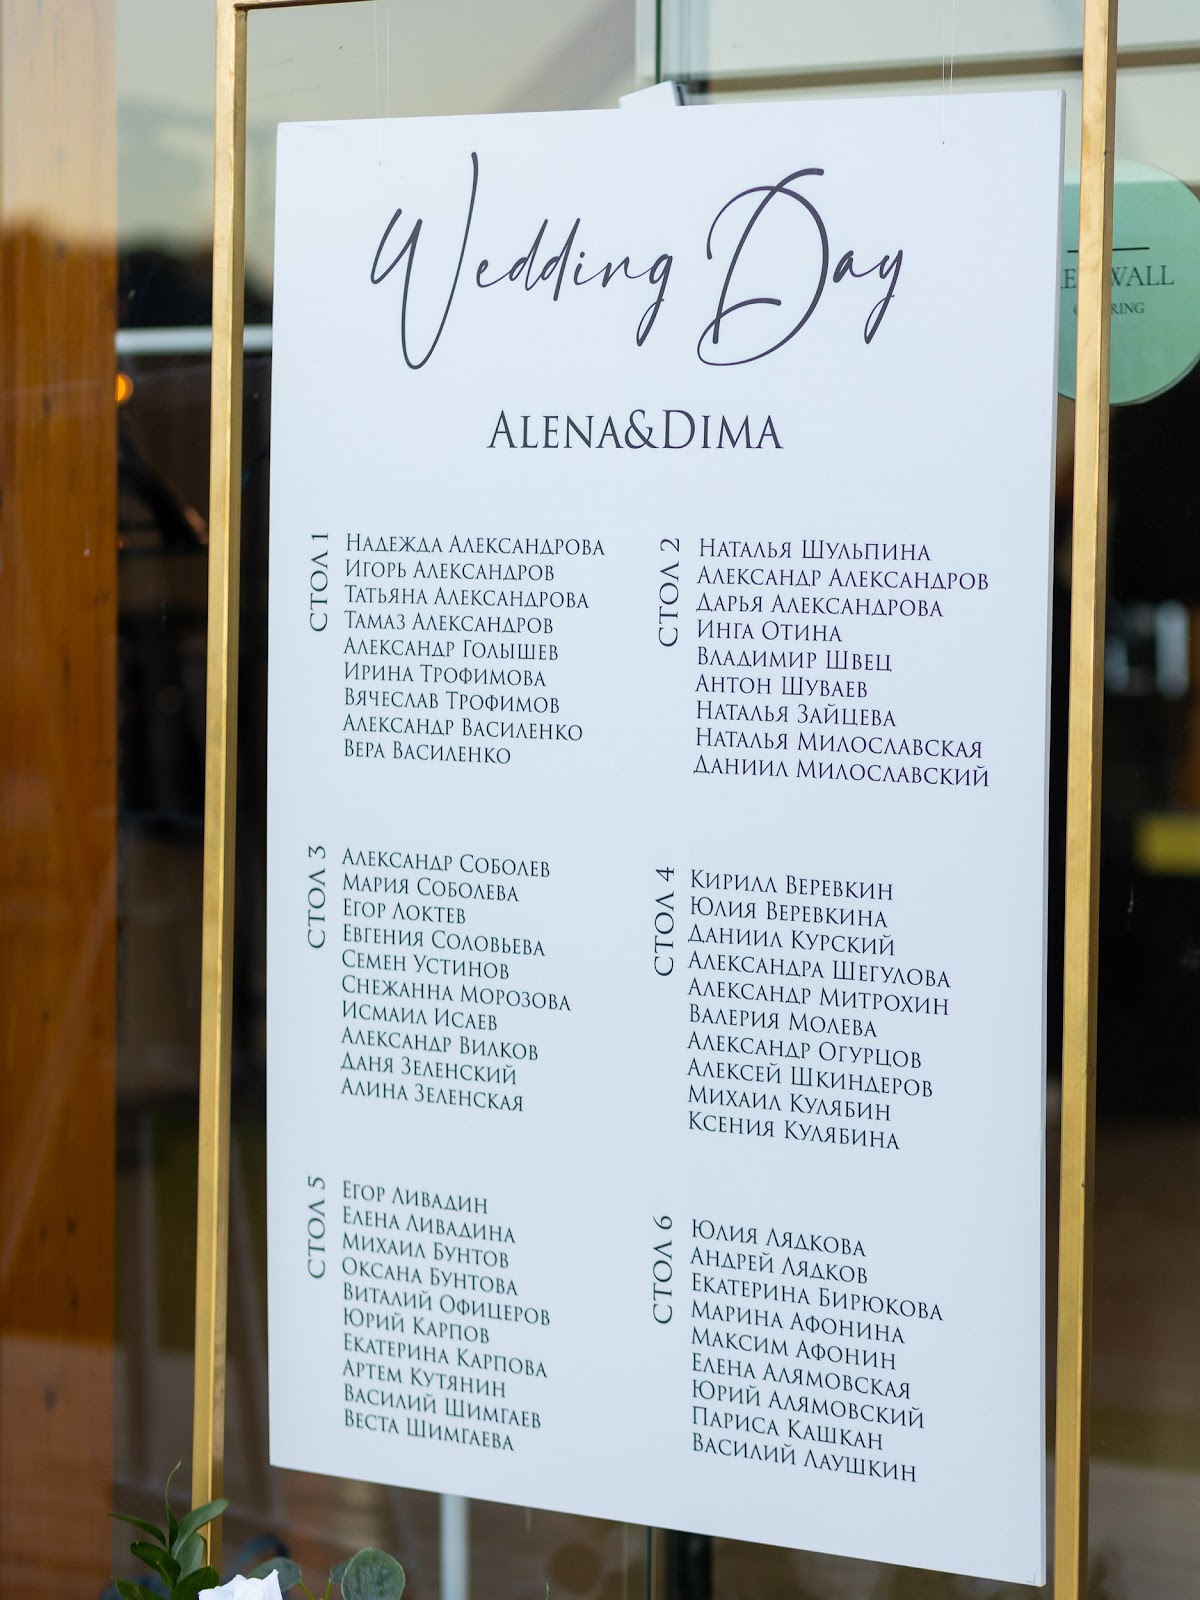 Wedding Day
ALENA&DIMA
СТОЛ 1
НАДЕЖДА АЛЕКСАНДРОВА
ИГОРЬ АЛЕКСАНДРОВ
ТАТЬЯНА АЛЕКСАНДРОВА
ТАМАЗ АЛЕКСАНДРОВ
АЛЕКСАНДР ГОЛЫШЕВ
ИРИНА ТРОФИМОВА
ВЯЧЕСЛАВ ТРОФИМОВ
АЛЕКСАНДР ВАСИЛЕНКО
ВЕРА ВАСИЛЕНКО
СТОЛ 2
НАТАЛЬЯ ШУЛЬПИНА
АЛЕКСАНДР АЛЕКСАНДРОВ
ДАРЬЯ АЛЕКСАНДРОВА
ИНГА ОТИНА
ВЛАДИМИР ШВЕЦ
АНТОН ШУВАЕВ
НАТАЛЬЯ ЗАЙЦЕВА
НАТАЛЬЯ МИЛОСЛАВСКАЯ
ДАНИИЛ МИЛОСЛАВСКИЙ
СТОЛ 3
АЛЕКСАНДР СОБОЛЕВ
МАРИЯ СОБОЛЕВА
ЕГОР ЛОКТЕВ
ЕВГЕНИЯ СОЛОВЬЕВА
СЕМЕН УСТИНОВ
СНЕЖАННА МОРОЗОВА
ИСМАИЛ ИСАЕВ
АЛЕКСАНДР ВИЛКОВ
ДАНЯ ЗЕЛЕНСКИЙ
АЛИНА ЗЕЛЕНСКАЯ
СТОЛ 4
КИРИЛЛ ВЕРЕВКИН
ЮЛИЯ ВЕРЕВКИНА
ДАНИИЛ КУРСКИЙ
АЛЕКСАНДРА ШЕГУЛОВА
АЛЕКСАНДР МИТРОХИН
ВАЛЕРИЯ МОЛЕВА
АЛЕКСАНДР ОГУРЦОВ
АЛЕКСЕЙ ШКИНДЕРОВ
МИХАИЛ КУЛЯБИН
КСЕНИЯ КУЛЯБИНА
СТОЛ 5
ЕГОР ЛИВАДИН
ЕЛЕНА ЛИВАДИНА
МИХАИЛ БУНТОВ
ОКСАНА БУНТОВА
ВИТАЛИЙ ОФИЦЕРОВ
ЮРИЙ КАРПОВ
ЕКАТЕРИНА КАРПОВА
АРТЕМ КУТЯНИН
ВАСИЛИЙ ШИМГАЕВ
ВЕСТА ШИМГАЕВА
СТОЛ 6
ЮЛИЯ ЛЯДКОВА
АНДРЕЙ ЛЯДКОВ
ЕКАТЕРИНА БИРЮКОВА
МАРИНА АФОНИНА
МАКСИМ АФОНИН
ЕЛЕНА АЛЯМОВСКАЯ
ЮРИЙ АЛЯМОВСКИЙ
ПАРИСА КАШКАН
ВАСИЛИЙ ЛАУШКИН
WALL